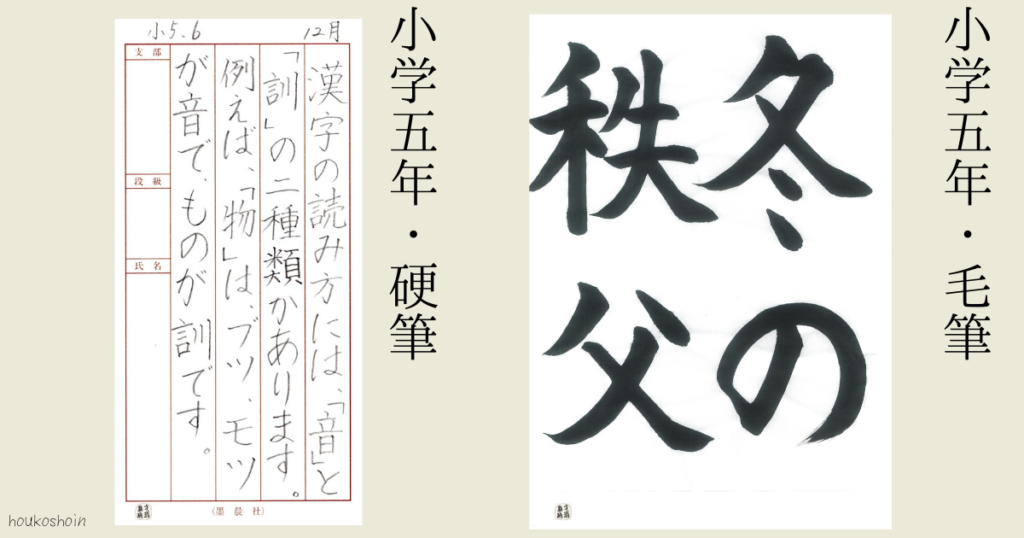 小学五年・毛筆
冬の
秩父
小学五年・硬筆
小5、6
12月
漢字の読み方には、「音」と
「訓」の二種類かあります。
例えば、「物」は、ブツ、モツ
が音で、ものが訓です。
支部
段級
氏名
(墨晨社)
houkoshoin